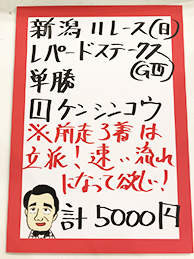 新潟11レース(日)
レパードステークス
(GⅢ)
単勝
11ケンシンコウ
※前走3着は
立派!速い流れ
になって欲しい!
計5000円